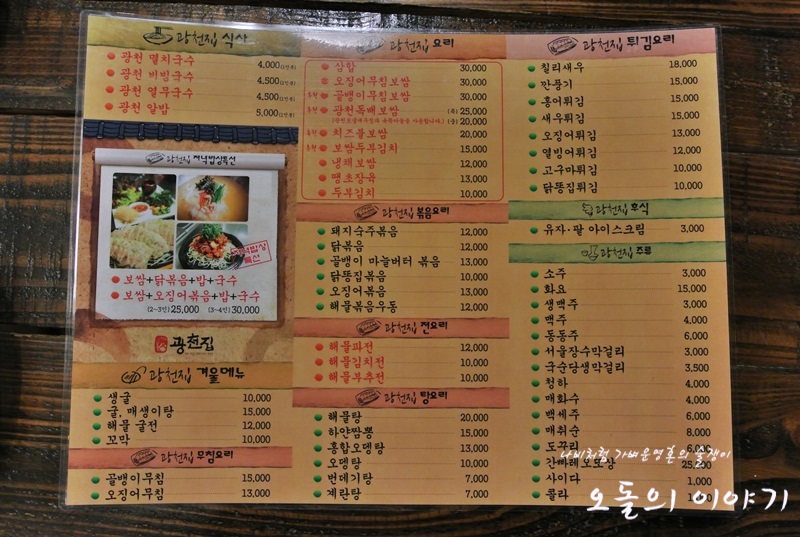 광천집 식사
광천 멸치국수 4,000(1인분)
광천 비빔국수 4,500(1인분)
광천 열무국수 4,500(1인분)
광천 알밥 5,000(1인분)
광천집 저녁밥상특선
저녁밥상
특선
보쌈+닭볶음+밥+국수
보쌈+오징어볶음+밥+국수
(2~3인)25,000 (3~4인)30,000
광천집
광천집 겨울메뉴
생굴 10,000
굴, 매생이탕 15,000
해물 굴전 12,000
꼬막 10,000
광천집 무침요리
골뱅이무침 15,000
오징어무침 13,000
광천집 요리
삼합 30,000
오징어무침보쌈 30,000
추천 골뱅이무침보쌈 30,000
추천 광천독배보쌈 (대) 25,000
(중) 20,000
추천 치즈불보쌈 20,000
추천 보쌈두부김치 15,000
냉채보쌈 12,000
땡초장육 13,000
두부김치 10,000
광천집 볶음요리
돼지숙주볶음 12,000
닭볶음 12,000
골뱅이 마늘버터 볶음 13,000
닭똥집볶음 10,000
오징어볶음 13,000
해물볶음우동 12,000
광천집 전요리
해물파전 12,000
해물김치전 12,000
해물부추전 12,000
광천집 탕요리
해물탕 20,000
하얀짬뽕 15,000
홍합오뎅탕 13,000
오뎅탕 10,000
번데기탕 7,000
계란탕 7,000
광천집 튀김요리
칠리새우 18,000
깐풍기 15,000
홍어튀김 15,000
새우튀김 15,000
오징어튀김 13,000
열빙어튀김 12,000
고구마튀김 10,000
닭똥집튀김 10,000
광천집 후식
유자·팥 아이스크림 3,000
광천집 주류
소주 3,000
화요 15,000
생맥주 3,000
맥주 4,000
동동주 6,000
서울장수막걸리 3,000
국순당생막걸리 3,500
청하 4,000
매화수 4,000
백세주 6,000
매취순 8,000
도꾸리 6,000
간빠레오또상 25,000
사이다 1,000
콜라
나비처럼 가벼운영혼의 쏠쟁이
오돌의 이야기